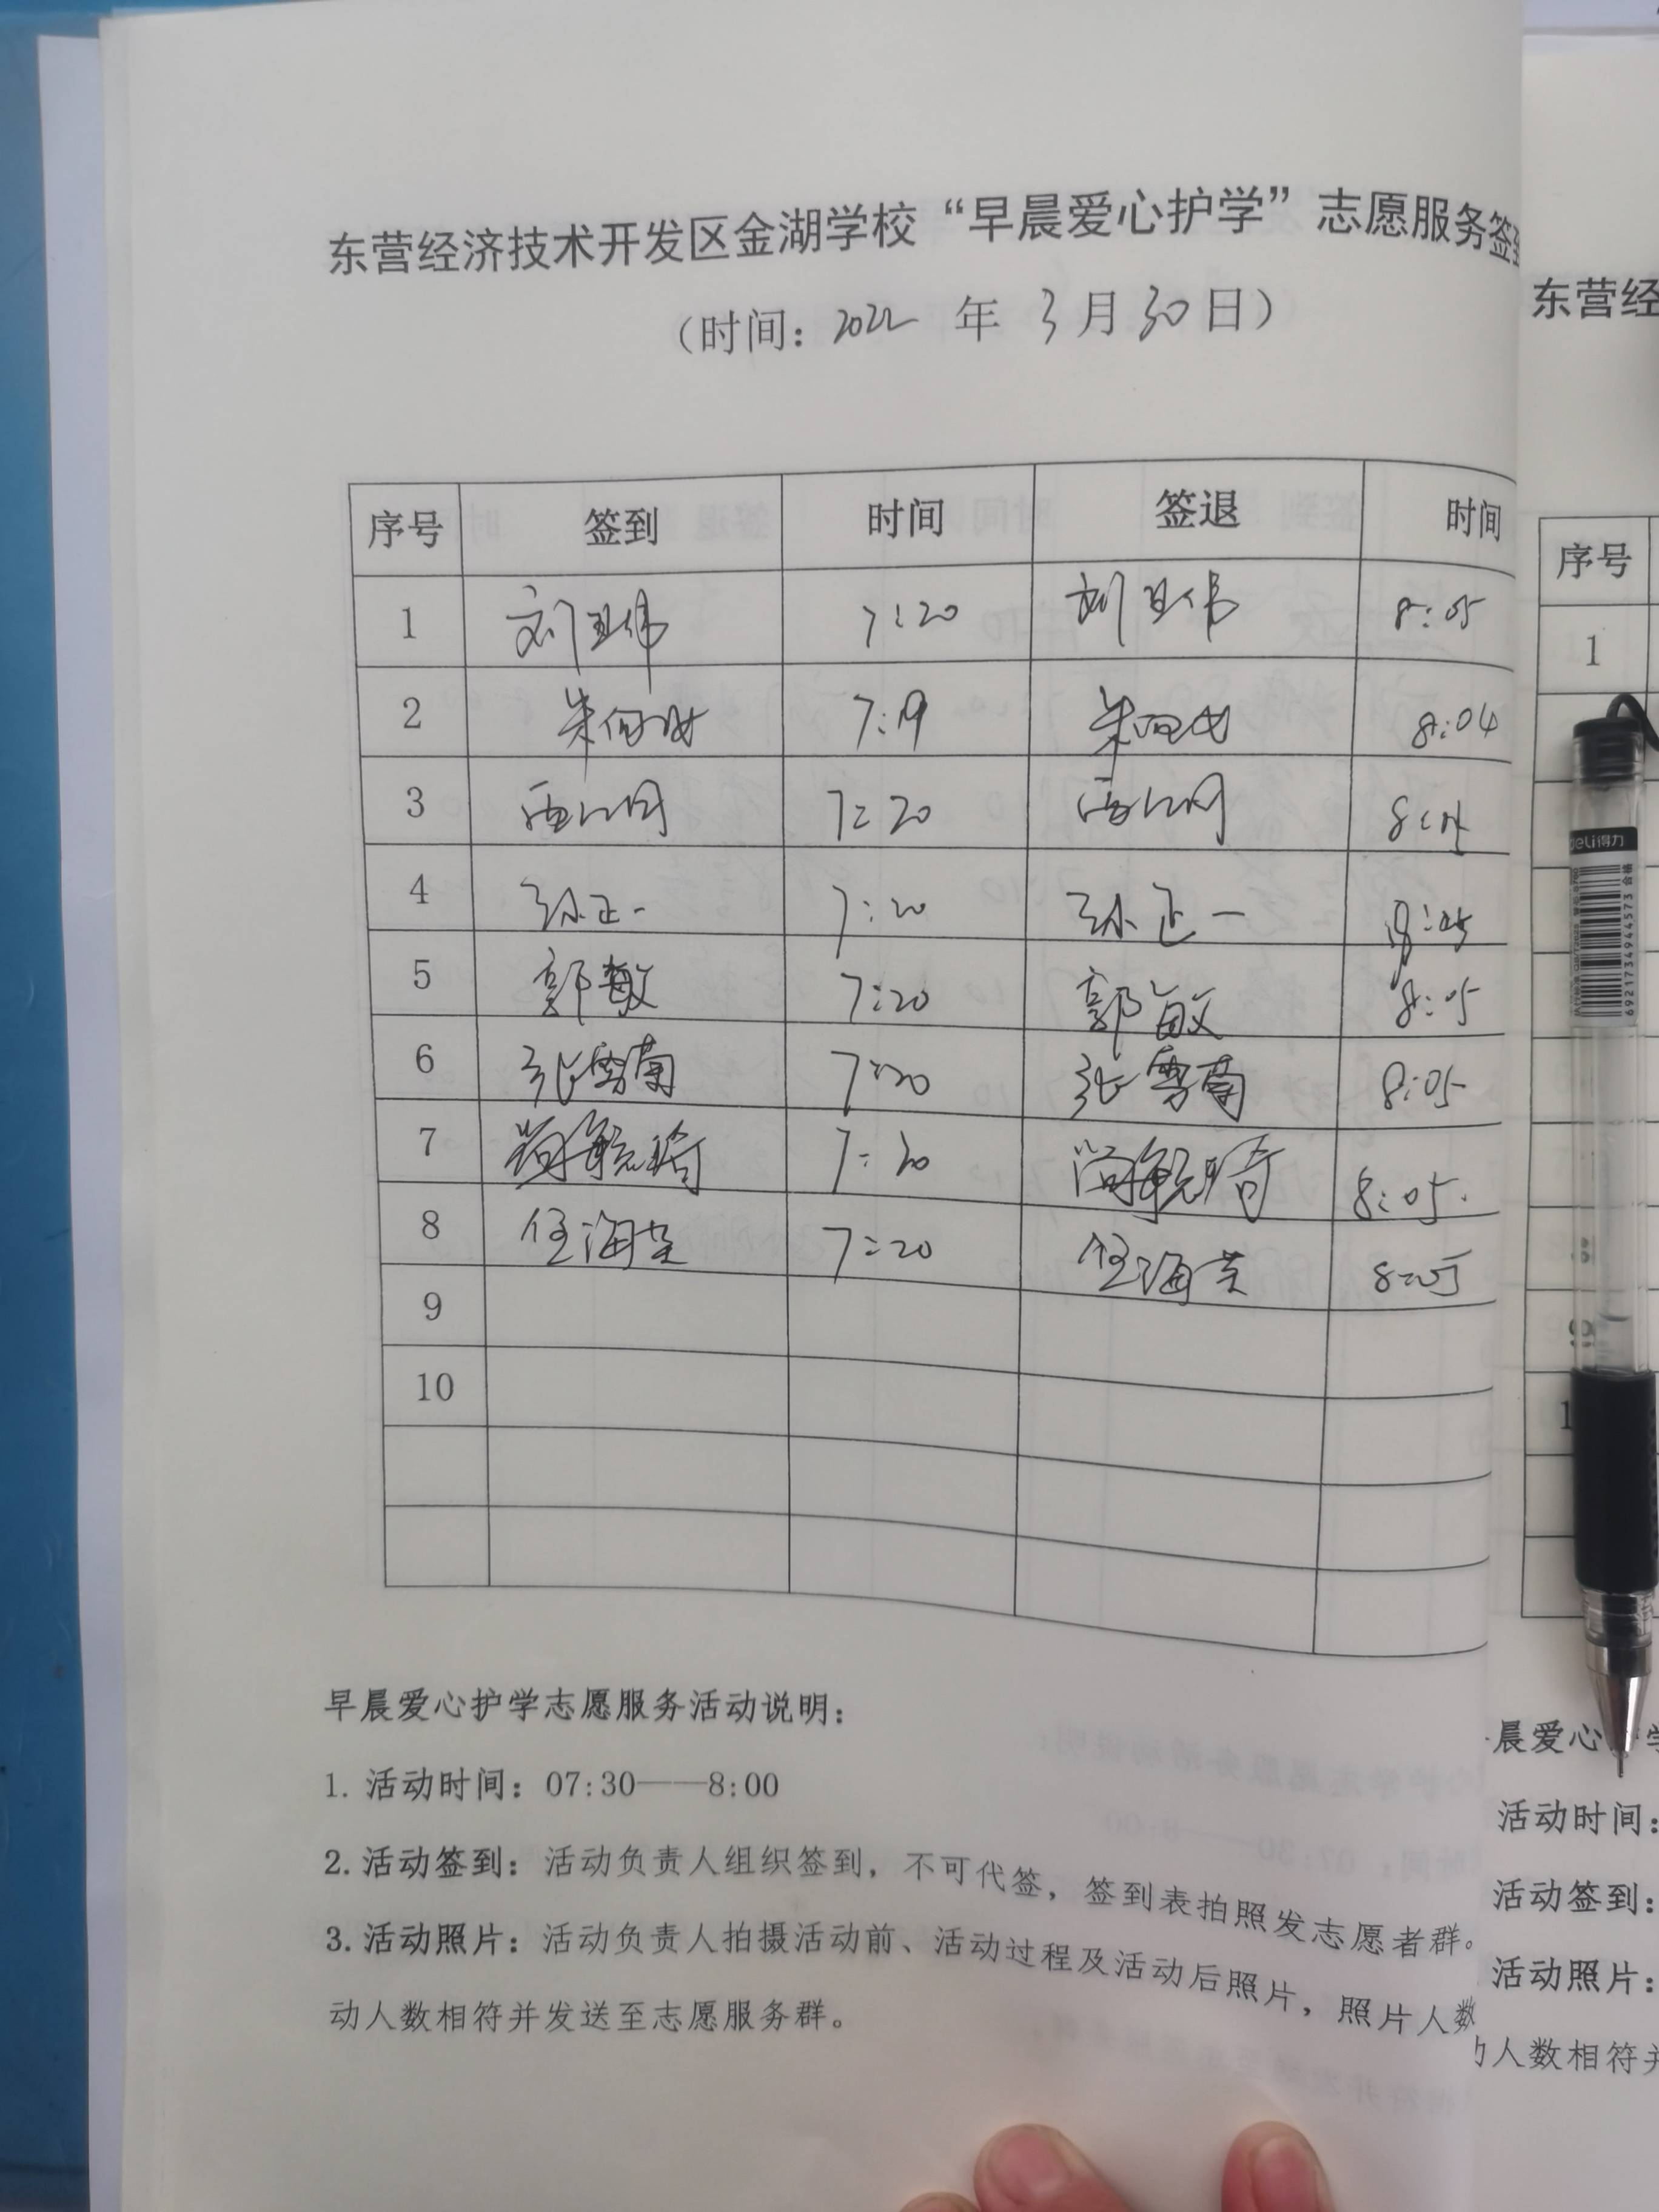 东营经济技术开发区金湖学校“早晨爱心护学”志愿服务签
（时间：2022 年 3 月 30 日）
序号 签到 时间 签退 时间
1 刘卫伟 7:20 刘卫伟 8:05
2 7:19 8:04
3 7:20
4 孙正一 7:20 孙正一 8:05
5 郭敏 7:20 郭敏 8:05
6 张雪菊 7:20 张雪菊 8:05
7 尚毓琦 7:20 尚毓琦 8:05
8 任海英 7:20 任海英 8:05
9
10
早晨爱心护学志愿服务活动说明：
1. 活动时间：07:30——8:00
2. 活动签到：活动负责人组织签到，不可代签，签到表拍照发志愿者群。
3. 活动照片：活动负责人拍摄活动前、活动过程及活动后照片，照片人数
动人数相符并发送至志愿服务群。
东营经
序号
1
晨爱心
活动时间：
活动签到：
活动照片：
人数相符并
deli得力
6921734944573
合格